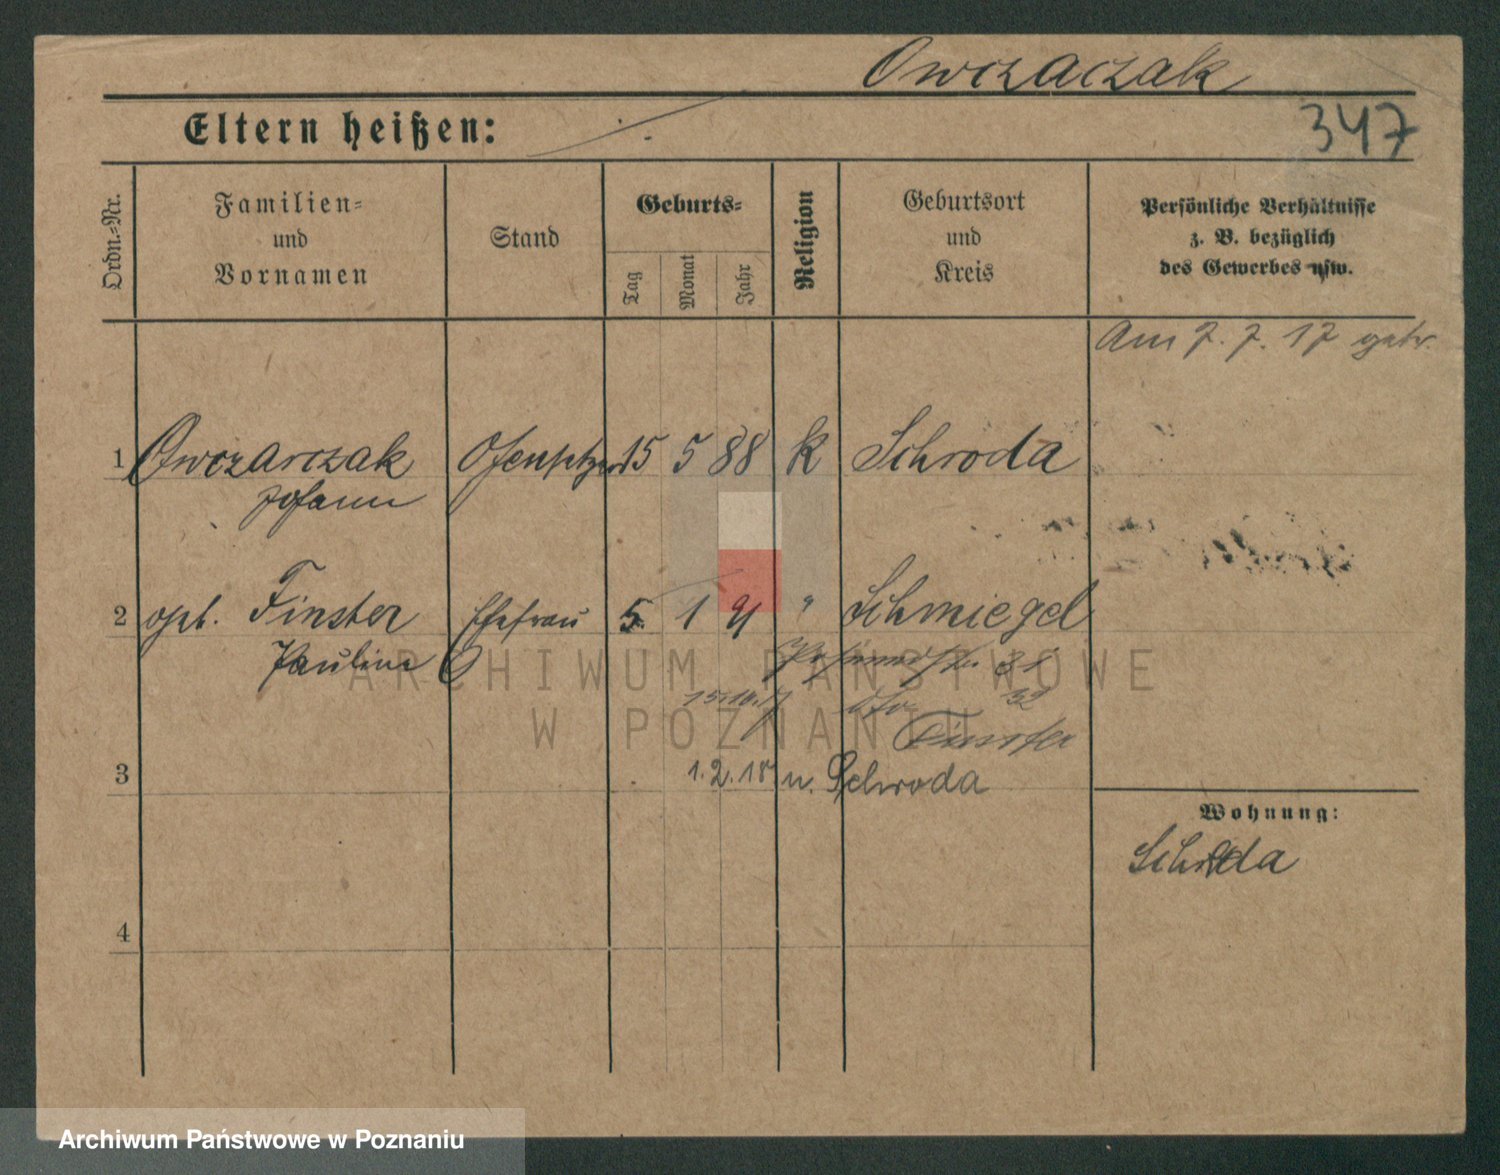 Owczaczak
347
Eltern heißen: ./.
Ordn.-Nr.
Familien-
und
Vornamen
Stand
Geburts-
Tag
Monat
Jahr
Religion
Geburtsort
und
Kreis
Persönliche Verhältnisse
z. B. bezüglich
des Gewerbes usw.
Am 7. 7. 17 getr.
1 Owczarczak Ofensetzer 15 5 88 k Schroda
Johann
2 geb. Finster Ehefrau 5. 1 91 " Schmiegel
Pauline
31
15.10.17 32
Finster
3 1.2.18 n. Schroda
Wohnung:
Schroda
4
ARCHIWUM PAŃSTWOWE
W POZNANIU
Archiwum Państwowe w Poznaniu